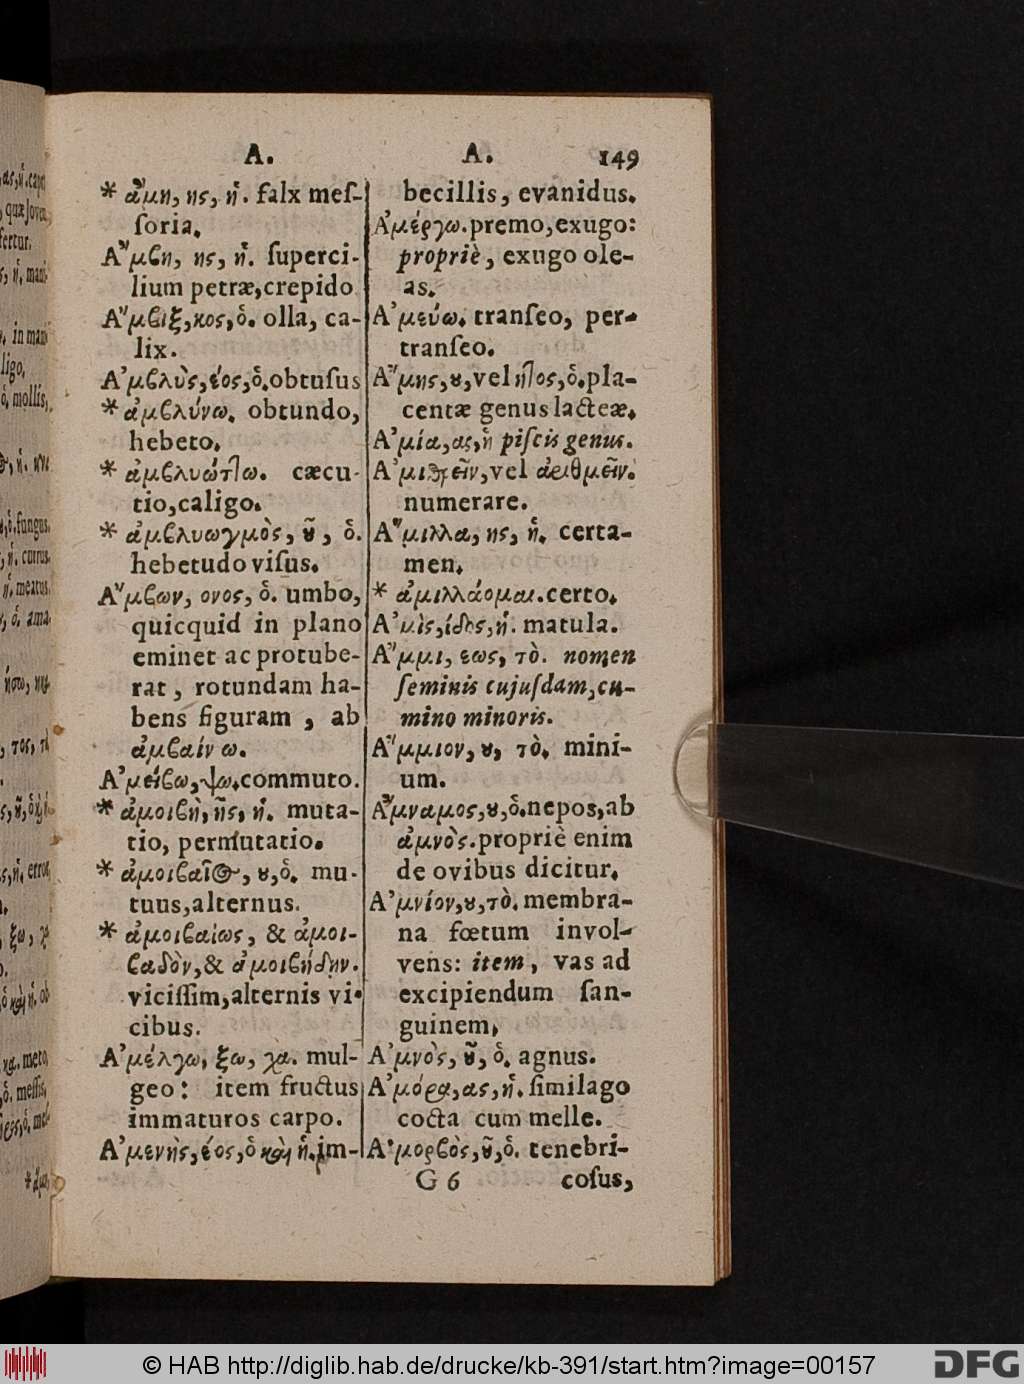 A.
* ἄμη, ης, ἡ. falx meſ-
ſoria.
Α῎μβη, ης, ἡ. ſuperci-
lium petræ, crepido
Α῎μβιξ, κος, ὁ. olla, ca-
lix.
Α᾿μβλὺς, έος, ὁ. obtuſus
* ἀμβλύνω. obtundo,
hebeto.
* ἀμβλυώττω. cæcu-
tio, caligo.
* ἀμβλυωγμὸς, ȣ͂, ὁ.
hebetudo viſus.
Α῎μβων, ονος, ὁ. umbo,
quicquid in plano
eminet ac protube-
rat, rotundam ha-
bens figuram, ab
ἀμβαίνω.
Α᾿μείβω, ψω. commuto.
* ἀμοιβὴ, ῆς, ἡ. muta-
tio, permutatio.
* ἀμοιβαῖος, ȣ, ὁ. mu-
tuus, alternus.
* ἀμοιβαίως, & ἀμοι-
βαδὸν, & ἀμοιβήδην.
viciſſim, alternis vi-
cibus.
Α᾿μέλγω, ξω, χα. mul-
geo: item fructus
immaturos carpo.
Α᾿μενὴς, έος, ὁ καὶ ἡ. im-
A. 149
becillis, evanidus.
Α᾿μέργω. premo, exugo:
propriè, exugo ole-
as.
Α᾿μεύω. tranſeo, per-
tranſeo.
Α῎μης, ȣ, vel ητος, ὁ. pla-
centæ genus lacteæ.
Α᾿μία, ας, ἡ piſcis genus.
Α᾿μιθρεῖν, vel ἀριθμεῖν.
numerare.
Α῞μιλλα, ης, ἡ. certa-
men.
* ἁμιλλάομαι. certo.
Α᾿μὶς, ίδος, ἡ. matula.
Α῎μμι, εως, τὸ. nomen
ſeminis cujuſdam, cu-
mino minoris.
Α῎μμιον, ȣ, τὸ. mini-
um.
Α῎μναμος, ȣ, ὁ. nepos, ab
ἀμνὸς. propriè enim
de ovibus dicitur.
Α᾿μνίον, ȣ, τὸ. membra-
na fœtum invol-
vens: item, vas ad
excipiendum ſan-
guinem.
Α᾿μνὸς, ȣ͂, ὁ. agnus.
Α᾿μόρα, ας, ἡ. ſimilago
cocta cum melle.
Α᾿μορβὸς, ȣ͂, ὁ. tenebri-
G 6 coſus,
© HAB http://diglib.hab.de/drucke/kb-391/start.htm?image=00157
DFG